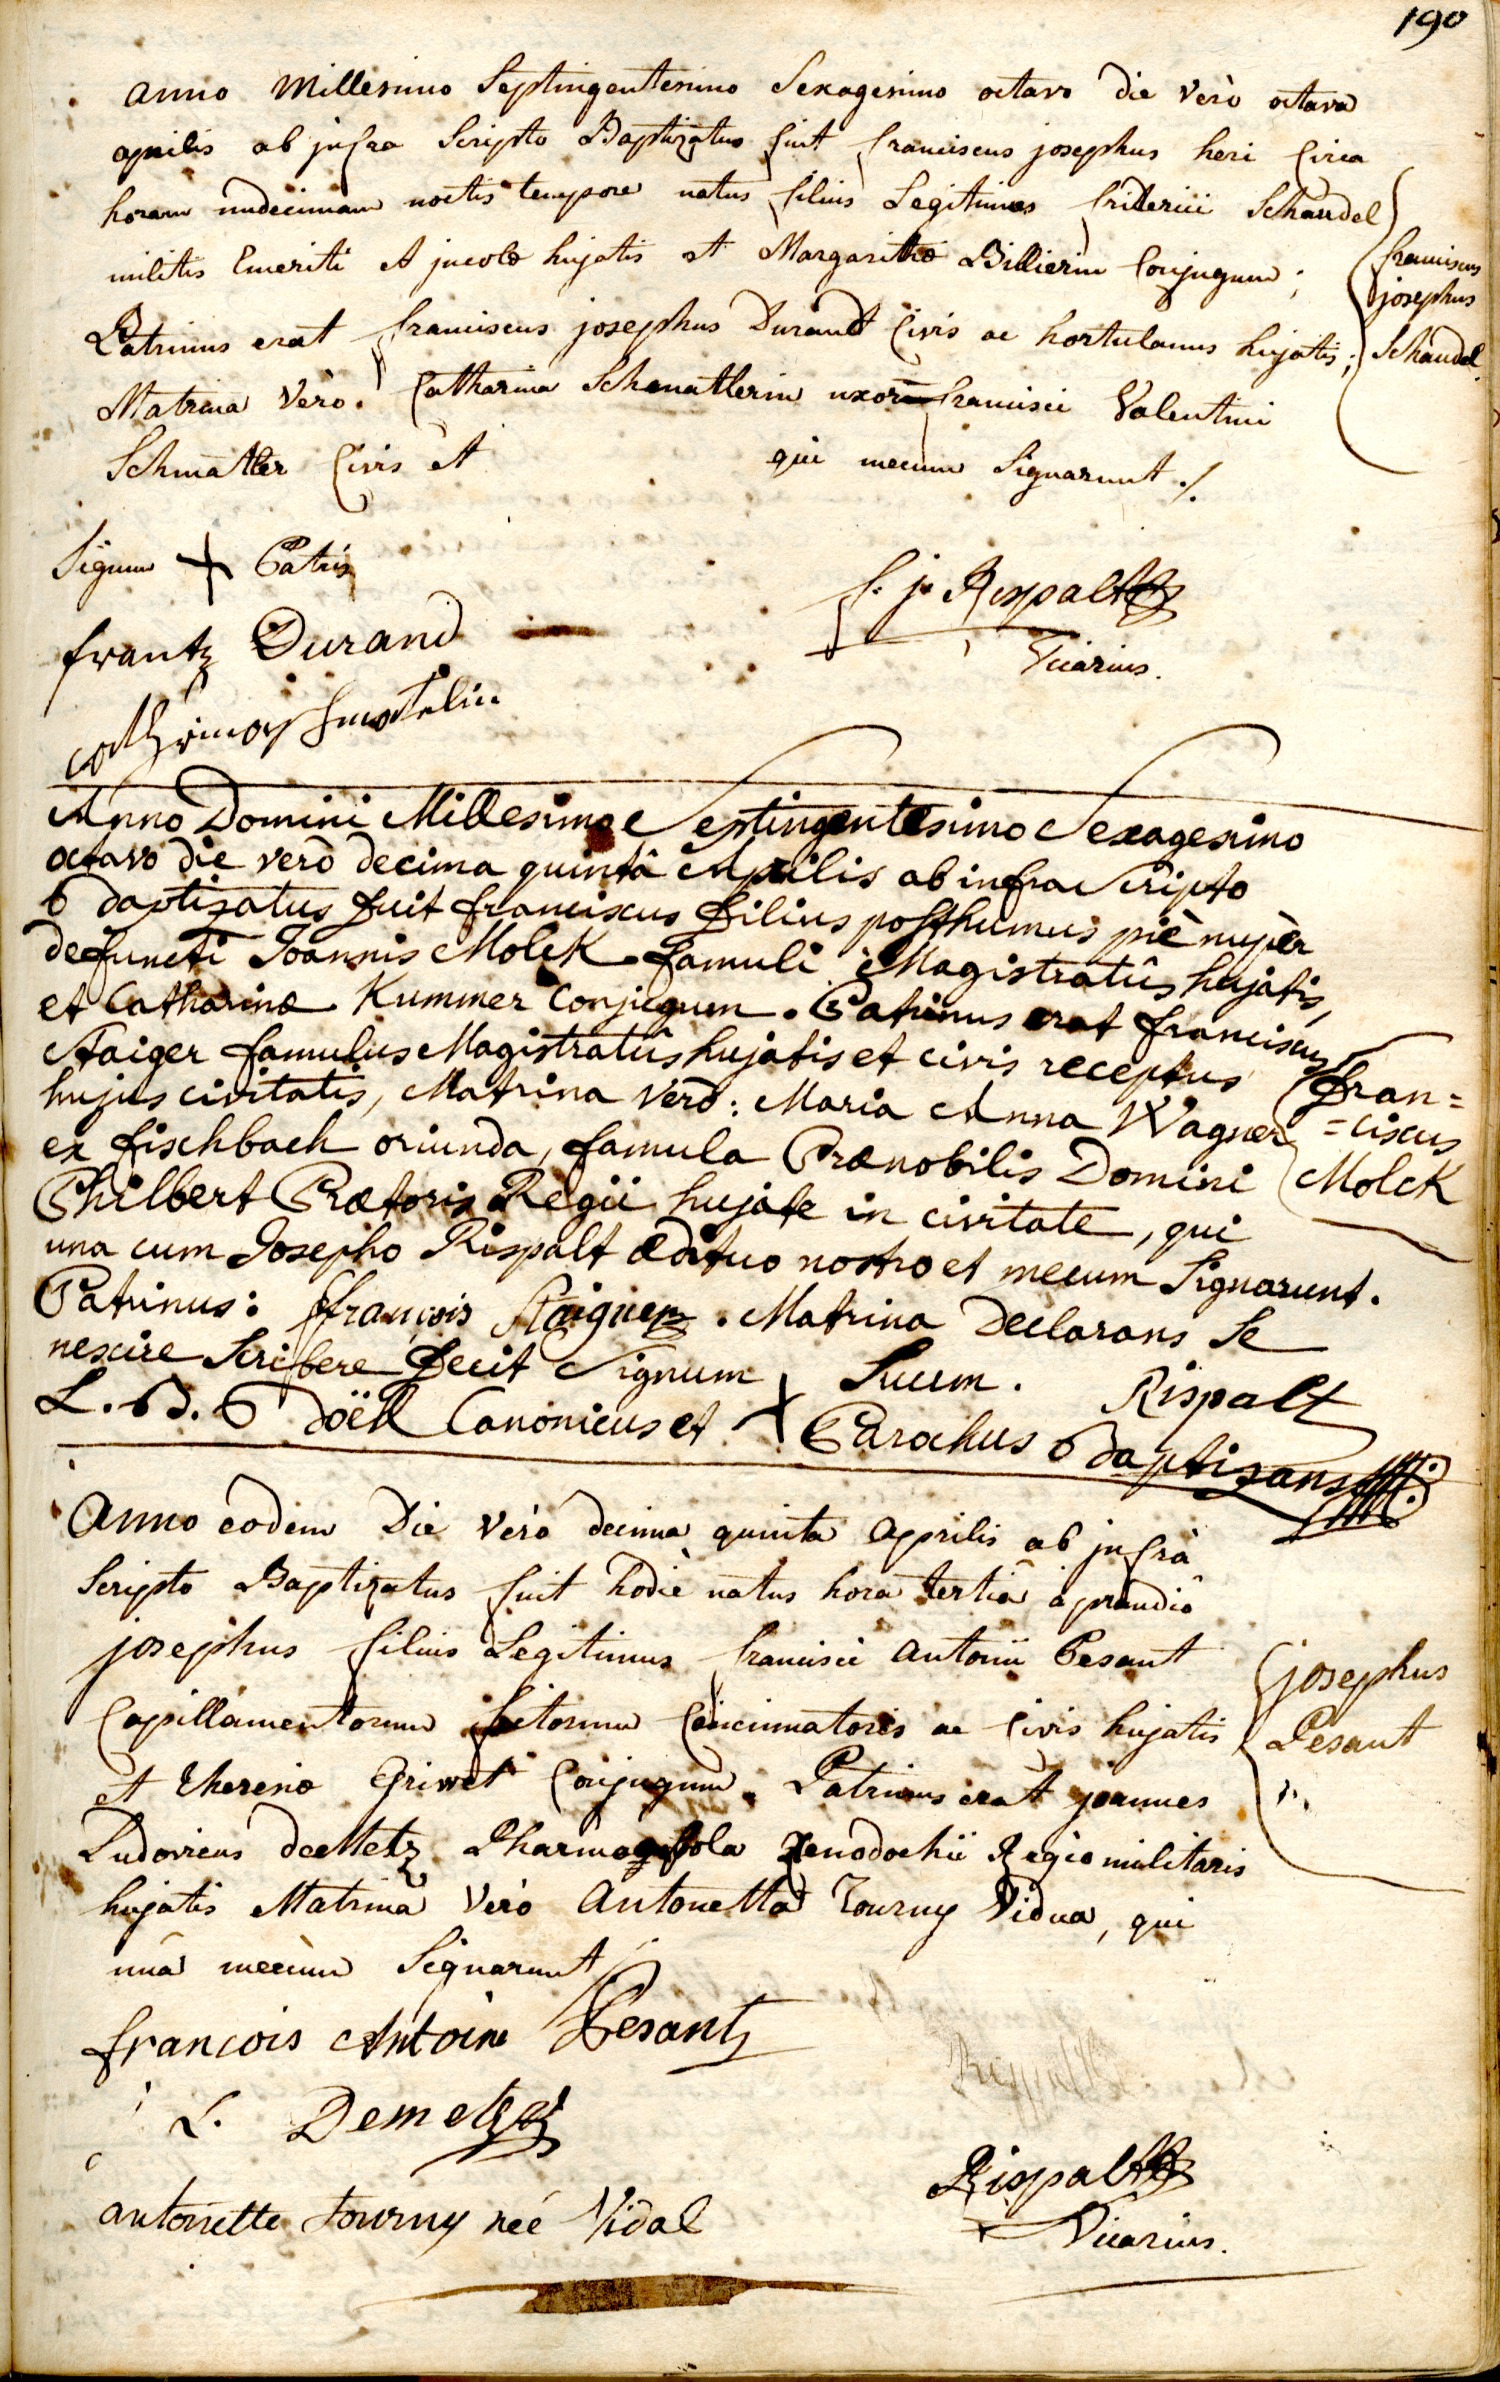 190
anno Millesimo Septingentesimo Sexagesimo octavo die verò octava
aprilis ab jnfra Scripto Baptizatus fuit franciscus josephus heri Circa
horam undecimam noctis tempore natus filius Legitimus friderici Schandel
militis Emeriti et jncolæ hujatis et Margarithæ Billierin Conjugum;
franciscus
josephus
Schandel.
Patrinus erat franciscus josephus Durand Civis ac hortulanus hujatis;
Matrina Verò. Catharina Schmattlerin uxor francisci Valentini
Schmattler Civis et qui mecum Signarunt ./.
Signum + Patris
f. j. Rispalt
frantz Durand
Vicarius.
Anno Domini Millesimo Septingentesimo Sexagesimo
octavo die verò decima quintâ Aprilis ab infra Scripto
Baptizatus fuit franciscus filius posthumus piè nupèr
defuncti Joannis Molck famuli Magistratûs hujatis,
et Catharinæ Kummer Conjugum. Patrinus erat franciscus
Staiger famulus Magistratûs hujatis et civis receptus
hujus civitatis, Matrina Verò: Maria Anna Wagner
ex fischbach oriunda, famula Prænobilis Domini
Philbert Prætoris Regii hujate in civitate, qui
una cum Josepho Rispalt ædituo nostro et mecum Signarunt.
fran=
=ciscus
Molck
Patrinus: François Staiguer. Matrina Declarans Se
nescire Scribere fecit Signum + Suum. Rispalt
L. B. Böell Canonicus et Parochus Baptizans
Anno eodem Die Verò decima quinta Aprilis ab jnfrà
Scripto Baptizatus fuit hodiè natus hora tertiâ à prandiô
josephus filius Legitimus francisci Antonii Pesant
Capillamentorum fictorum Concinnatoris ac Civis hujatis
et Theresiæ Griwet Conjugum. Patrinus erat joannes
Ludovicus deMetz Pharmacopola Xenodochii Regio militaris
hujatis Matrina Verò Antonetta Tourny Vidua, qui
unâ mecum Signarunt
josephus
Pesant
francois Antoine Pesant
L. Demetz
Rispalt
antoinette tourny neé Vidal
Vicarius.